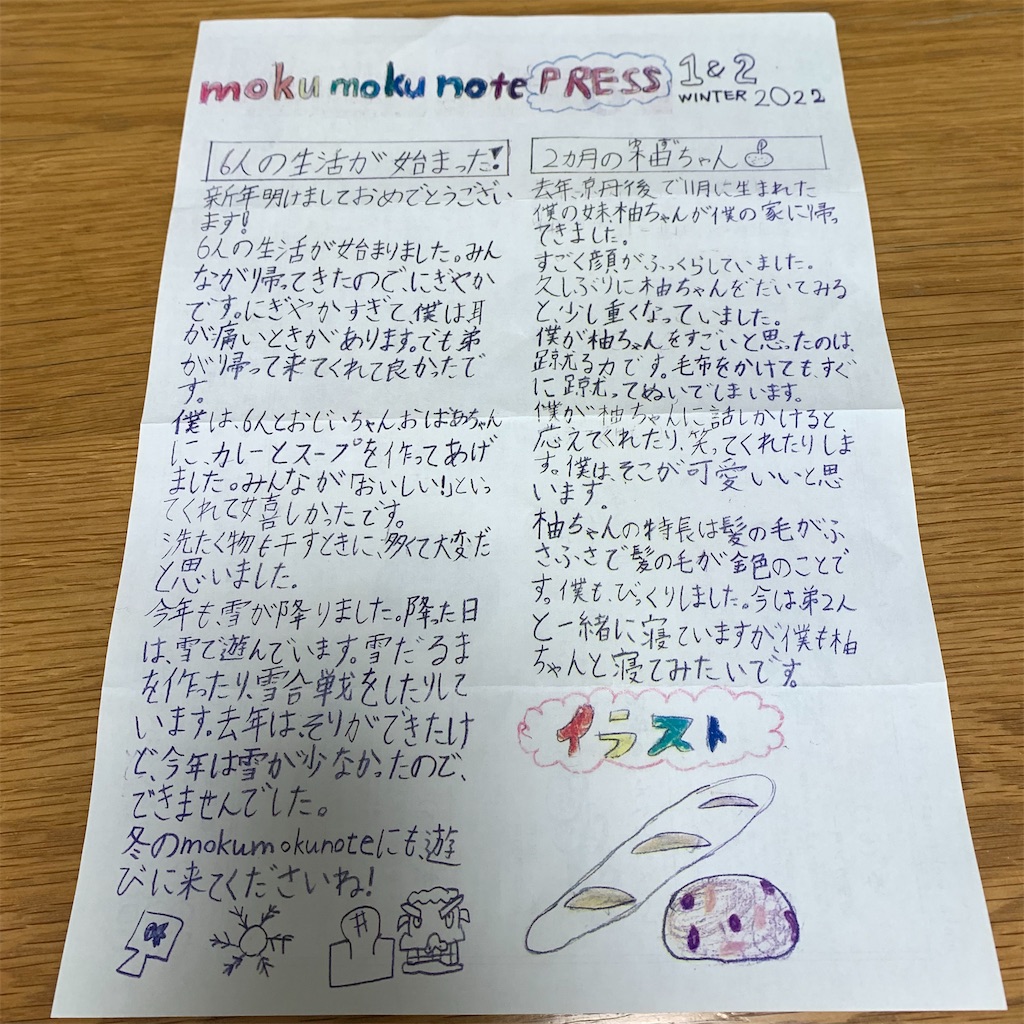 mokumokunote PRESS 1&2
WINTER 2022
6人の生活が始まった!
新年明けましておめでとうござい
ます!
6人の生活が始まりました。みん
ながり帰ってきたので、にぎやか
です。にぎやかすぎて僕は耳
が痛いときがあります。でも弟
がり帰って来てくれて良かったで
す。
僕は、6人とおじいちゃん、おばあちゃん
に、カレーとスープを作ってあげ
ました。みんなが「おいしい!」といっ
てくれて嬉しかったです。
洗たく物も干すときに、多くて大変だ
と思いました。
今年も、雪が降りました。降った日
は、雪で遊んでいます。雪だるま
を作ったり、雪合戦をしたりして
います。去年は、そりができたけ
ど、今年は雪が少なかったので、
できませんでした。
冬のmokumokunoteにも、遊
びに来てくださいね!
2カ月の柚ちゃん
ゆず
去年、京丹後で11月に生まれた
僕の妹、柚ちゃんが僕の家に帰っ
てきました。
すごく顔が、ふっくらしていました。
久しぶりに柚ちゃんをだいてみる
と、少し重くなっていました。
僕が柚ちゃんをすごいと思ったのは、
蹴る力です。毛布をかけても、すぐ
に蹴ってぬいでしまいます。
僕が柚ちゃんに話しかけると、
応えてくれたり、笑ってくれたりしま
す。僕は、そこが可愛いいと思
います。
柚ちゃんの特長は髪の毛がふ
さふさで髪の毛が金色のことで
す。僕も、びっくりしました。今は弟2人
と一緒に寝ていますが、僕も柚
ちゃんと寝てみたいです。
イラスト